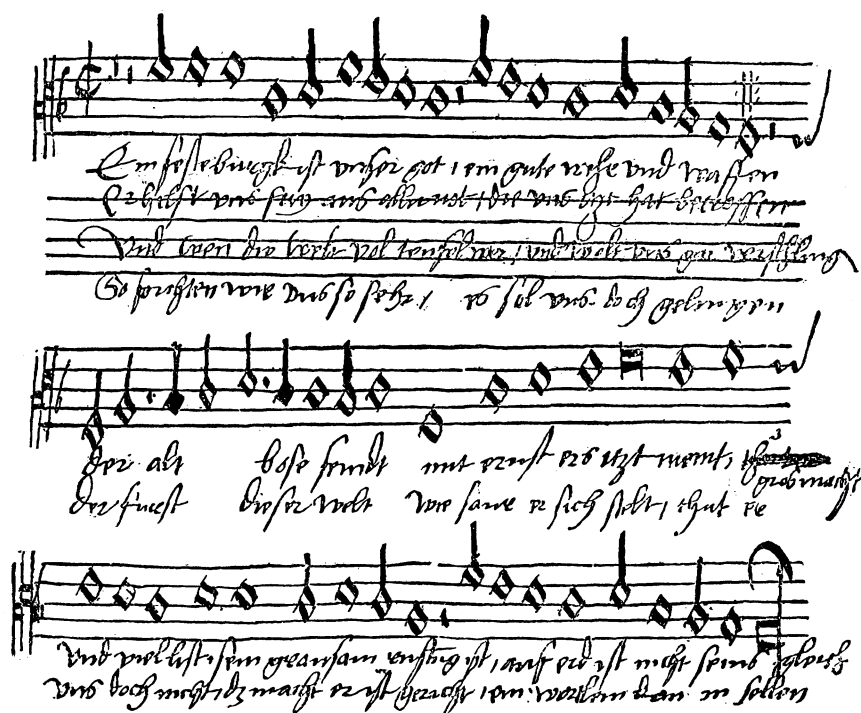 Ein feste burgk ist unser got, ein gute wehr und waffen
Er hilft uns frey aus aller not, die uns hat betroffen
Und wen die welt vol teufel wer, und wolt uns gar verschling
So furchten wir uns so sehr, es sol uns doch gelingen
der alt bose feindt mit ernst ers itzt meint, gros macht
der furst dieser welt wie saur er sich stelt, thut er
und viel list, sein grausam rustung ist, auf erd ist nicht seins gleich
uns doch nicht, dz macht er ist gericht, ein wortlein kan in fellen